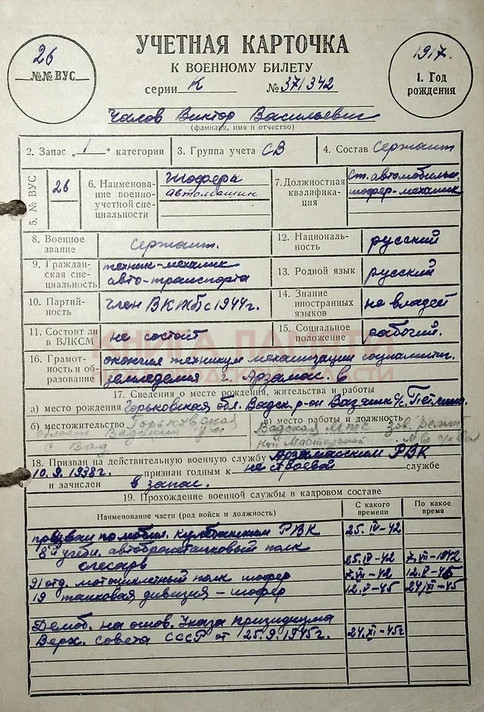 26
№№ ВУС
УЧЕТНАЯ КАРТОЧКА
К ВОЕННОМУ БИЛЕТУ
серии К № 371342
1917.
1. Год
рождения
Чалов Виктор Васильевич
(фамилия, имя и отчество)
2. Запас „ 1 " категории
3. Группа учета СВ
4. Состав Сержант
5. № ВУС
26
6. Наименование военно-учетной специальности
шофера
автомашин
7. Должностная квалификация
Ст. автомобильн.
шофер-механик
8. Военное звание
Сержант.
9. Гражданская специальность
техник-механик
авто-транспорта
10. Партийность
член ВКП(б) с 1944 г.
11. Состоит ли в ВЛКСМ
не состоит
12. Национальность
русский
13. Родной язык
русский
14. Знание иностранных языков
не владеет
15. Социальное положение
рабочий.
16. Грамотность и образование
окончил техникум механизации социалистич.
земледелия Арзамас. в
17. Сведения о месте рождения, жительства и работы
а) место рождения Горьковская обл. Вадск. р-он
б) местожительство Горьковская
с Вад
в) место работы и должность
Вадская МТС Зав. Ремонт
ной Мастерской
18. Призван на действительную военную службу Арзамасским РВК
10.9.1938г. признан годным к не строевой службе
и зачислен в запас.
19. Прохождение военной службы в кадровом составе
Наименование части (род войск и должность)
С какого времени
По какое время
призван по мобил. РВК 25.IV-42
8й учебн. автобронетанковый полк
слесарь 25.IV-42
91 отд. мотоциклетный полк шофер 12.V-45
19 танковая дивизия - шофер 12.V-45 24/XI-45
Демоб. на основ. Указа президиума
Верх. совета СССР от 25.9.1945г. 24.XI-45г
КНИГА ПАМЯТИ